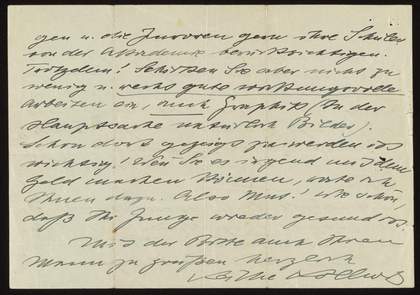 gen u. die Juroren gern ihre Schüler
von der Akademie berücksichtigen.
Trotzdem! Schicken Sie aber nicht zu
wenig u. recht gute wirkungsvolle
Arbeiten ein, auch Graphik (In der
Hauptsache natürlich Bilder).
Schon dort gezeigt zu werden ist
wichtig! Wenn Sie es irgend mit dem
Geld machen können, rate ich
Ihnen dazu. Also Mut! Wie schön,
daß Ihr Junge wieder gesund ist.
Mit der Bitte auch Ihren
Mann zu grüßen herzlich
Käthe Kollwitz